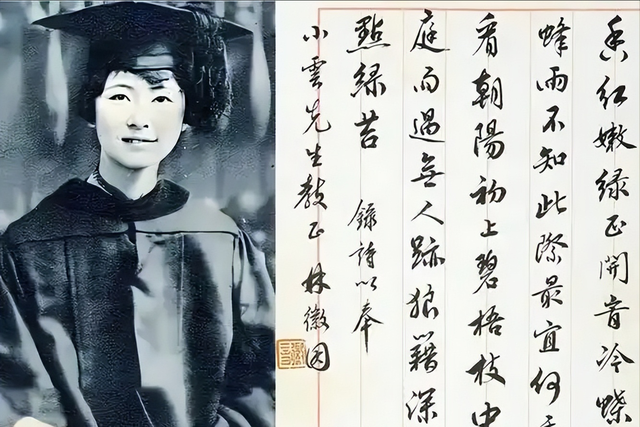 香红嫩绿正開旹冷蝶
蜂兩不知此際最宜何
看朝陽初上碧梧枝中
庭雨過無人跡狼藉深
點绿苔 錄詩以奉
小雲先生教正 林徽因